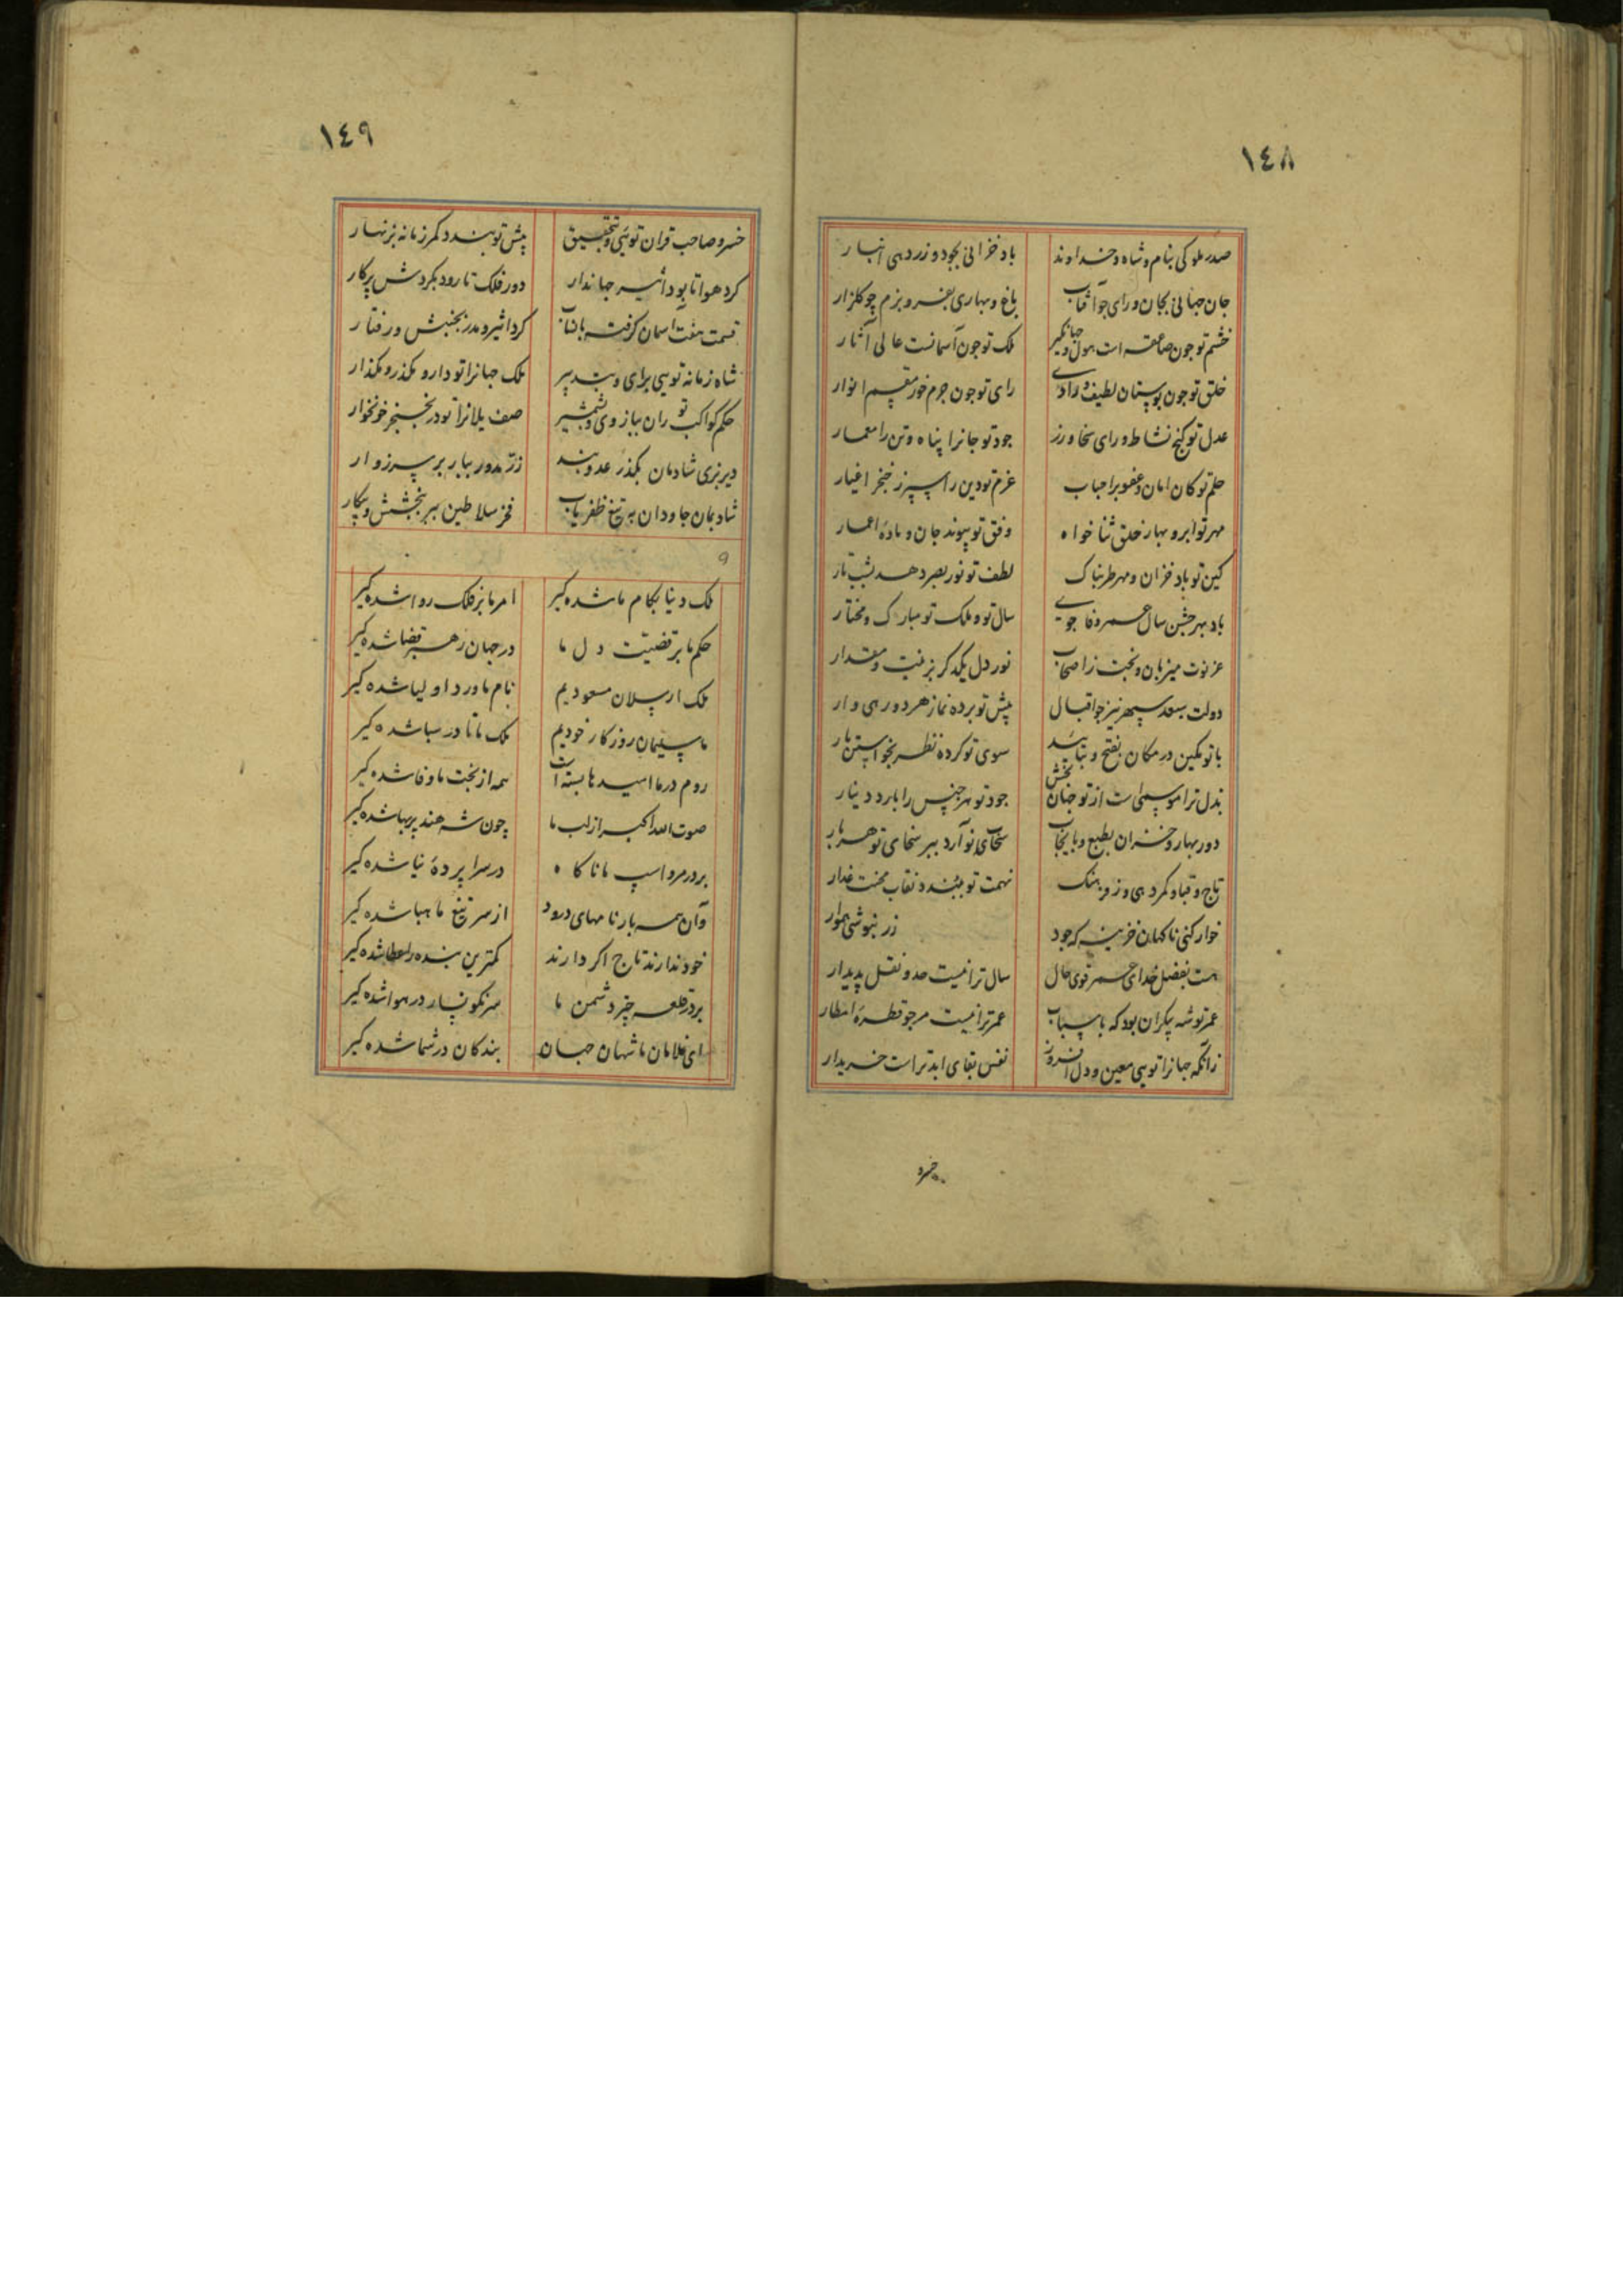 ١٤٨
صدر ملوکی بنام و شاه و خداوند باد خزانی بجود و زر دهی انبار
جان جهانی بجان و رای چو آفتاب باغ و بهاری بفر و بزم چو گلزار
خشم تو چون صاعقه است هول و جهانگیر ملک تو چون آسمانست عالی آثار
خلق تو چون بوستان لطیف و رادی رای تو چون جرم خور مقیم انوار
عدل تو گنج نشاط و رای سخا ورز جود تو جانرا پناه و تن را معمار
حلم تو کان امان و عفو بر احباب عزم تو دین را سپر ز خنجر اغیار
مهر تو ابر و بهار خلق ثنا خواه وفق تو پیوند جان و مادهٔ اعمار
کین تو باد خزان و مهر طربناک لطف تو نور بصر دهد بشب تار
باد بهر جشن سال عمر وفا جوی سال تو و ملک تو مبارک و مختار
عز توت میزبان و بخت ز اصحاب نور دل یکدگر بزینت و مقدار
دولت بسعد سپهر نیز چو اقبال پیش تو برده نماز هر دو رهی وار
با تو مکین در مکان بفتح و بتایید سوی تو کرده نظر بخواستن بار
بذل ترا موسمی است از تو جنان بخش جود تو هر جنس را بارد دینار
دور بهار و خزان بطبع و بایجاب سخای تو آرد ببر سخای تو هر بار
تاج و قباو کمر دهی وز و بهنک نهمت تو بیند و نقاب محنت غدار
خوار کنی ناکهان خزینه که جود زر نبوشی هموار
هست بفضل خدای عمر قوی حال سال ترا نیست حد و نقل پدیدار
عمر تو شه بیکران بود که باسباب عمر ترا نیست مر چو قطرهٔ امطار
زآنکه جهانرا تویی معین و دل افروز نفس بقای ابد تراست خریدار
خسرو
١٤٩
خسرو صاحب قران تویی و بتحقیق پیش تو بندد کمر زمانه بزنهار
کرد هوا تا بود اثیر جهاندار دور فلک تا رود بکردش پرکار
قسمت هفت آسمان گرفته بافتاب کرد اثیر و مدر بجنبش و رفتار
شاه زمانه تویی برای و بتدبیر ملک جهانرا تو دار و بکذر و بکذار
حکم کواکب تو ران ببازوی و شمشیر صف یلانرا تو در بخنجر خونخوار
دیر بزی شادمان بکذر عدو بند زر مدور ببار بر سر زوار
شاد بمان جاودان به تیغ ظفریاب فخر سلاطین ببر ببخشش و پیکار
ملک دنیا بکام ما شده گیر امر ما بر فلک روا شده گیر
حکم ما بر قضیت دل ما در جهان رهبر قضا شده گیر
ملک ارسلان مسعودیم نام ما ورد اولیا شده گیر
ما سلیمان روزگار خودیم ملک ما تا در سبا شده گیر
روم در ما امیدها بسته است همه از بخت ما وفا شده گیر
صوت الله اکبر از لب ما چون شه هند پر بها شده گیر
بر در مرو اسپ ما ناکاه در سرا پردهٔ نیا شده گیر
وآن همه بارنامهای درود از سر تیغ ما هبا شده گیر
خود ندارند تاج اگر دارند کمترین بنده را عطا شده گیر
بر در قلعه چتر دشمن ما سرنکونسار در هوا شده گیر
ای غلامان ما شهان جهان بندکان در شما شده گیر